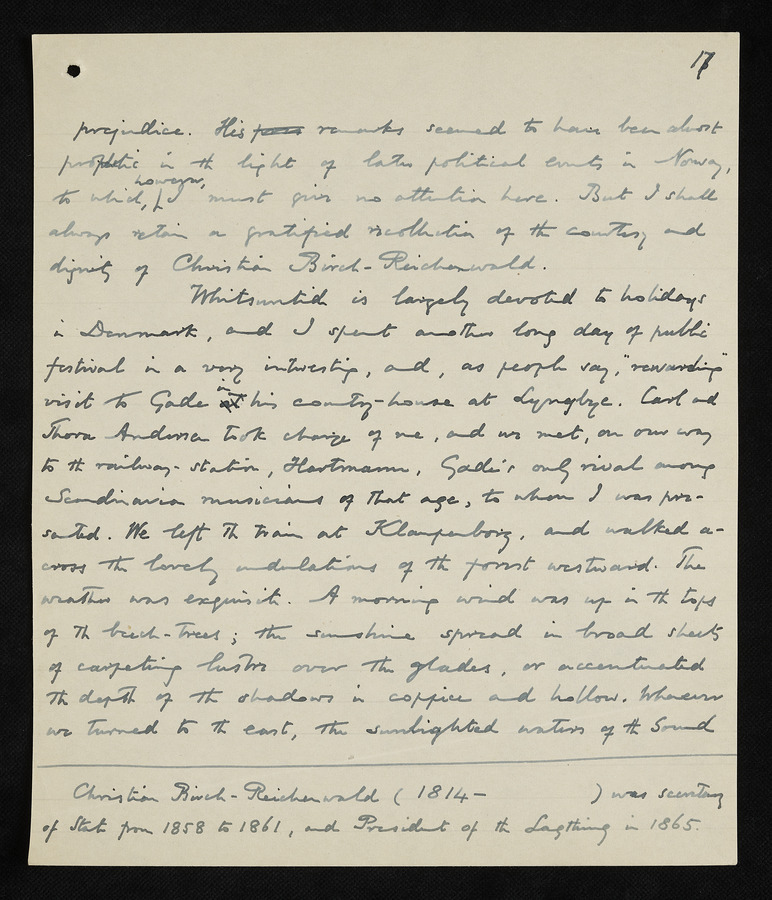 17
prejudice. His remarks seemed to have been almost
prophetic in the light of later political events in Norway,
to which, however, I must give no attention here. But I shall
always retain a gratified recollection of the courtesy and
dignity of Christian Birch-Reichenwald.
Whitsuntide is largely devoted to holidays
in Denmark, and I spent another long day of public
festival in a very interesting, and, as people say, "rewarding"
visit to Gade in his country-house at Lyngbye. Carl and
Thora Andersen took charge of me, and we met, on our way
to the railway-station, Hartmann, Gade's only rival among
Scandinavian musicians of that age, to whom I was pre-
sented. We left the train at Klampenborg, and walked a-
cross the lovely undulations of the forest westward. The
weather was exquisite. A morning wind was up in the tops
of the beech-trees; the sunshine spread in broad sheets
of carpeting lustre over the glades, or accentuated
the depth of the shadows in coppice and hollow. Whenever
we turned to the east, the sunlighted waters of the Sound
Christian Birch-Reichenwald (1814- ) was secretary
of State from 1858 to 1861, and President of the Lagthing in 1865.